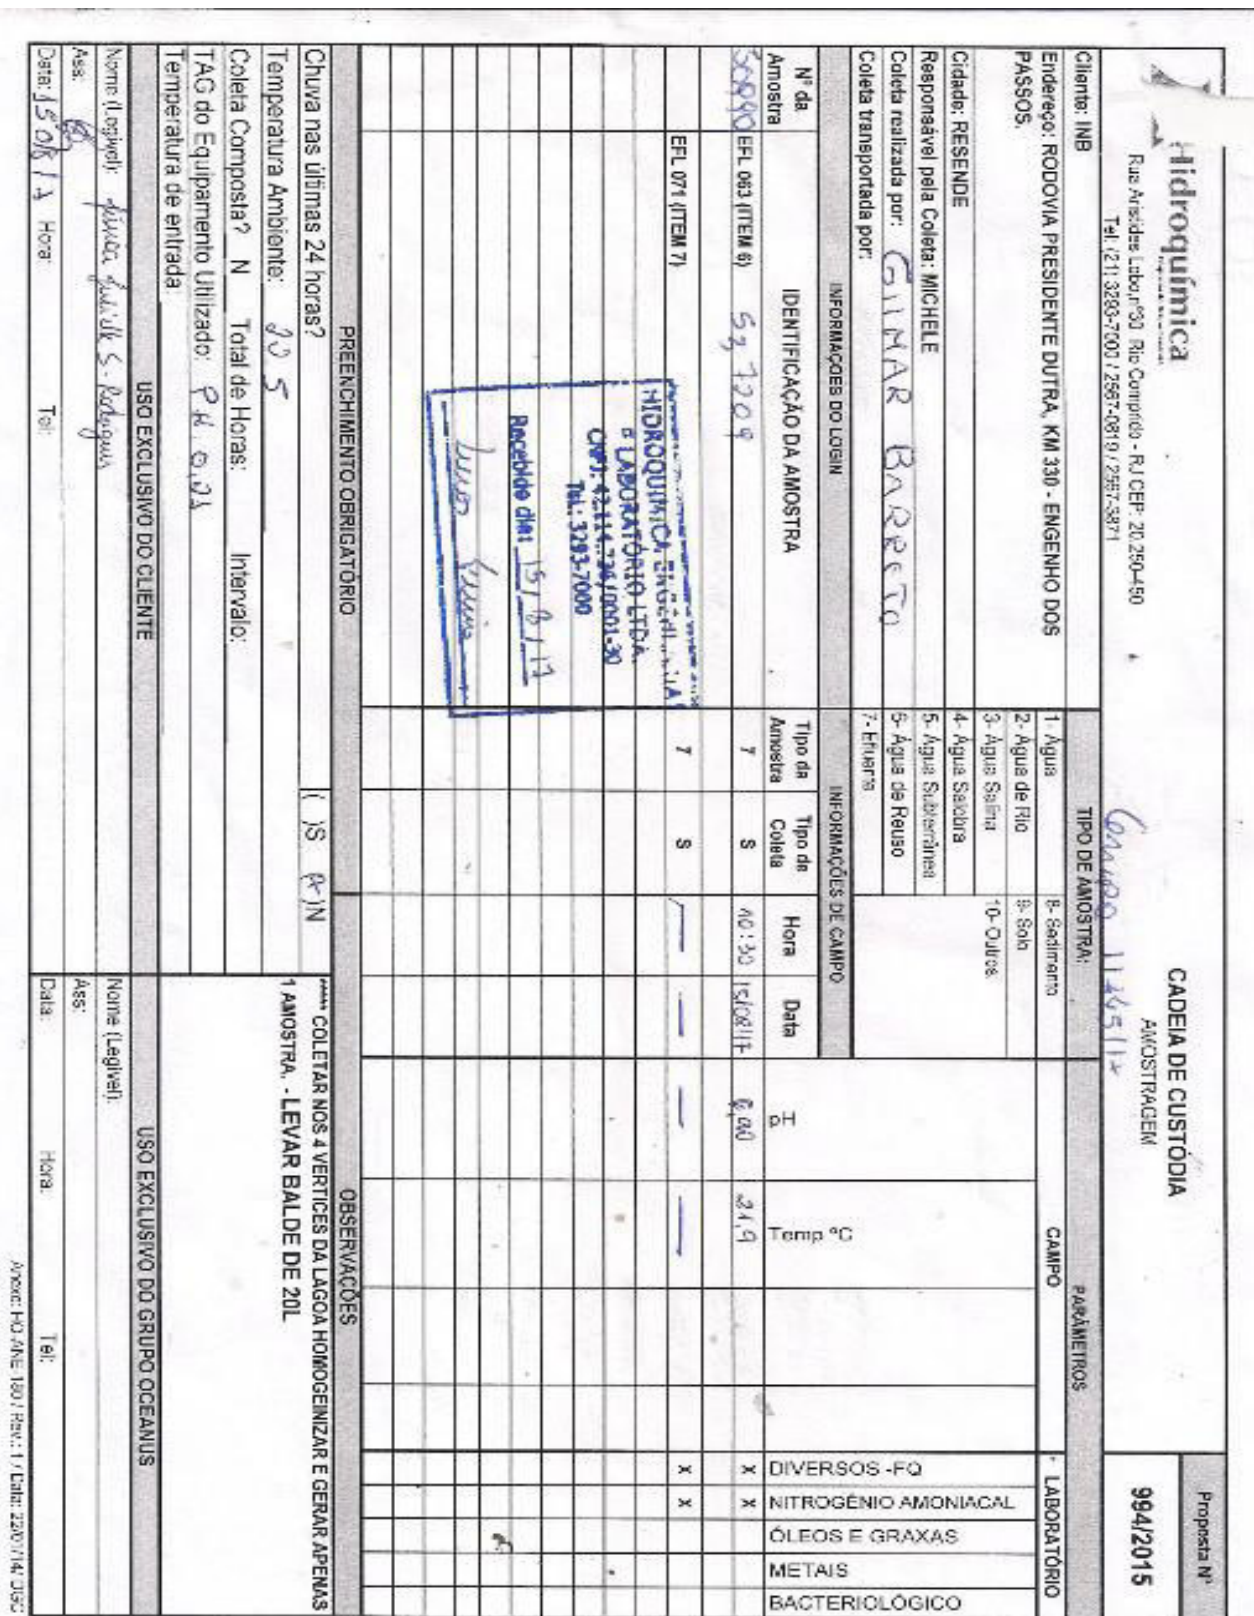 Hidroquímica
Rua Aristides Lobo,nº30 Rio Comprido - RJ CEP: 20.250-450
Tel: (21) 3293-7000 / 2567-0819 / 2567-3871
CADEIA DE CUSTÓDIA
AMOSTRAGEM
Proposta Nº
994/2015
Cliente: INB
Endereço: RODOVIA PRESIDENTE DUTRA, KM 330 - ENGENHO DOS
PASSOS.
Cidade: RESENDE
Responsável pela Coleta: MICHELE
Coleta realizada por: GILMAR BARRETO
Coleta transportada por:
TIPO DE AMOSTRA:
1- Água
2- Água de Rio
3- Água Salina
4- Água Salobra
5- Água Subterrânea
6- Água de Reuso
7- Efluente
8- Sedimento
9- Solo
10- Outros.
PARÂMETROS
CAMPO
LABORATÓRIO
INFORMAÇÕES DO LOGIN
INFORMAÇÕES DE CAMPO
Nº da Amostra
IDENTIFICAÇÃO DA AMOSTRA
Tipo da Amostra
Tipo de Coleta
Hora
Data
pH
Temp ºC
DIVERSOS -FQ
NITROGÊNIO AMONIACAL
ÓLEOS E GRAXAS
METAIS
BACTERIOLÓGICO
EFL 063 (ITEM 6) 7 S 10:30 15/08/17 21,9 x x
EFL 071 (ITEM 7) 7 S — — — — x x
HIDROQUIMICA ENGENHARIA
E LABORATÓRIO LTDA.
Tel.: 3293-7000
Recebido dia: 15/8/17
PREENCHIMENTO OBRIGATÓRIO
Chuva nas últimas 24 horas? ( )S (x)N
Temperatura Ambiente: 20 5
Coleta Composta? N Total de Horas: Intervalo:
TAG do Equipamento Utilizado: PH.0.21
Temperatura de entrada:
OBSERVAÇÕES
**** COLETAR NOS 4 VERTICES DA LAGOA HOMOGEINIZAR E GERAR APENAS
1 AMOSTRA. - LEVAR BALDE DE 20L
USO EXCLUSIVO DO CLIENTE
Nome (Legível):
Ass:
Data: Hora: Tel:
USO EXCLUSIVO DO GRUPO OCEANUS
Nome (Legível):
Ass:
Data: Hora: Tel:
Anexo: HQ-ANE-180 / Rev.: 1 / Data: 22/01/14/ DGC